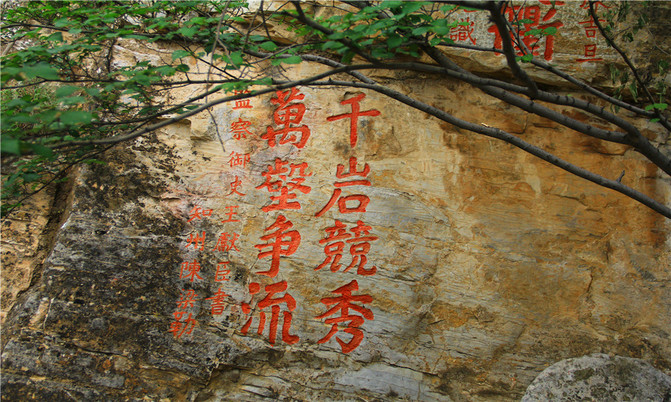 千岩競秀
萬壑争流
監察御史王献臣書
知州陳
識